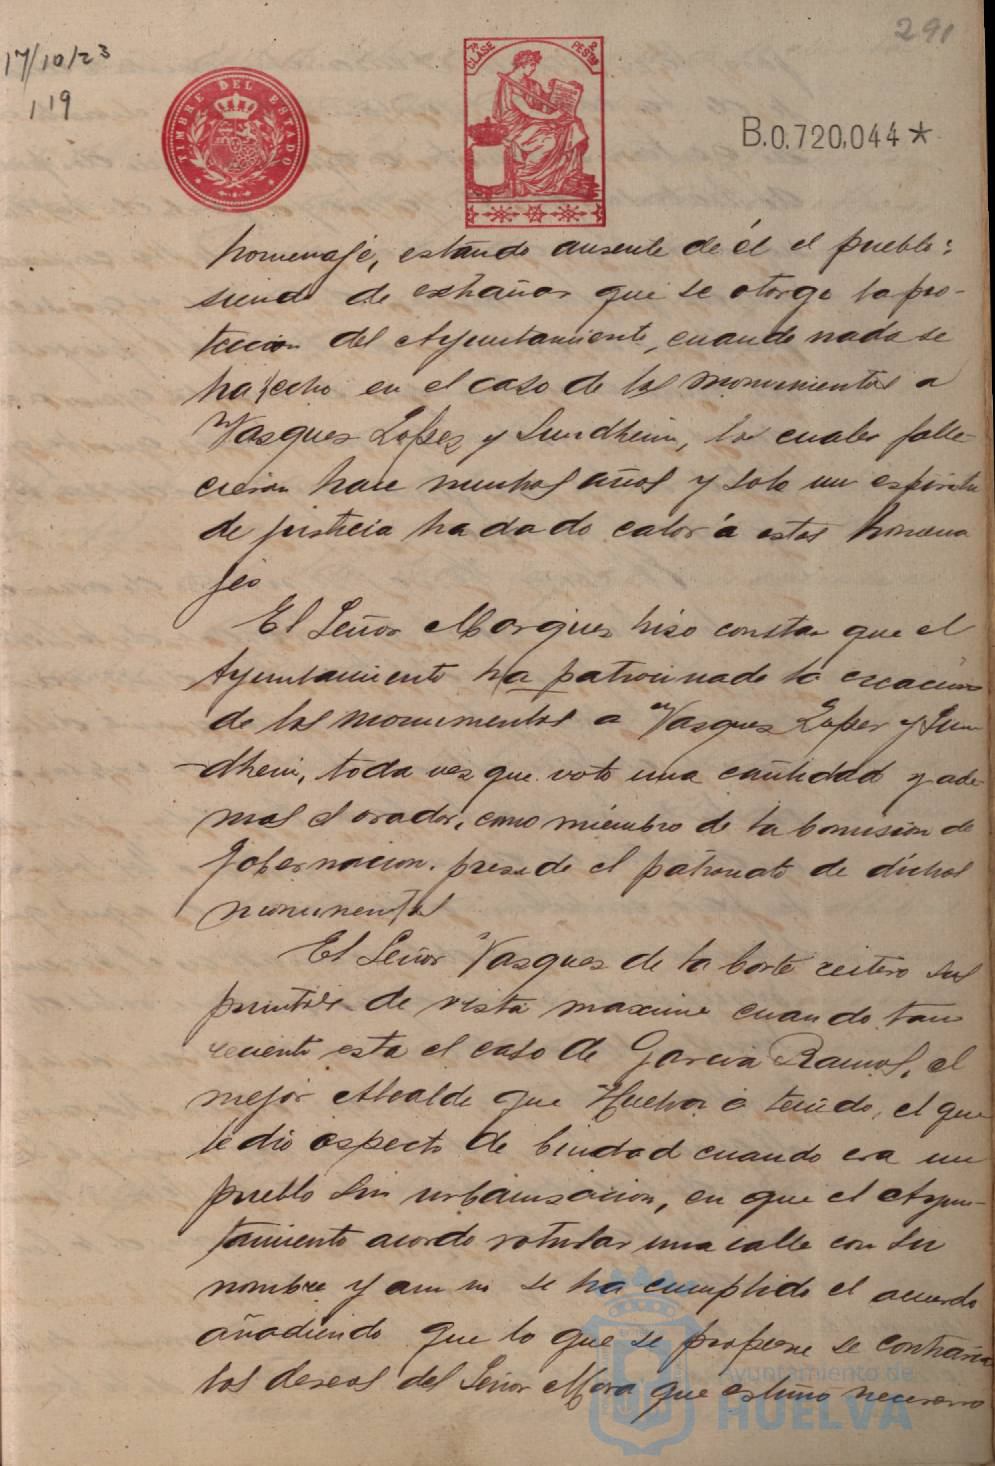 291
17/10/23
119
TIMBRE DEL ESTADO
7ª CLASE 2 PESTAS
B.0.720,044*
homenaje, estando ausente de él el pueblo;
siendo de exhañar que se otorge la pro-
teccion del Ayuntamiento, cuando nada se
ha hecho en el caso de los monumentos a
Vasques Lopez y Sundheim, los cuales falle-
cieron hace muchos años y solo un espiritu
de justicia ha dado calor á estos homena
jes
El Señor Marquez hiso constar que el
Ayuntamiento ha patrocinado la creacion
de los monumentos a Vasquez Lopez y Sun
dhein, toda ves que voto una cantidad y ade-
mas el orador, como miembro de la Comision de
Gobernacion. preside el patronato de dichos
monumentos
El Señor Vasques de la Corte reitero sus
puntos de vista maxime cuando tan
reciente esta el caso de Garcia Ramos, el
mejor Alcalde que Huelva á tenido, el que
le dio aspecto de Ciudad cuando era un
pueblo sin urbanisacion, en que el Ayun-
tamiento acordo rotular una calle con su
nombre y aun no se ha cumplido el acuerdo
añadiendo que lo que se propone se contraria
los deseos del Señor Mora que estimó necesario
Ayuntamiento de
HUELVA